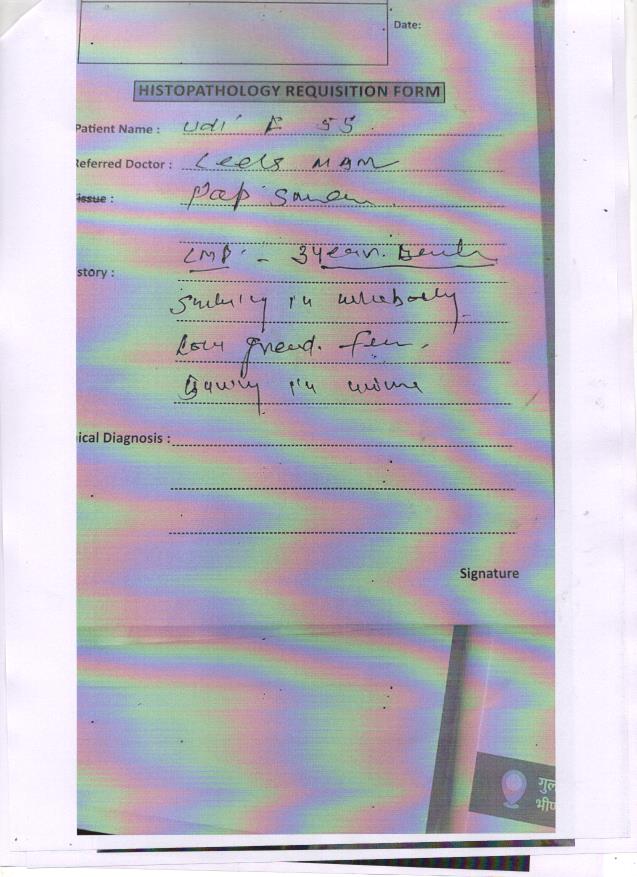 Date:
HISTOPATHOLOGY REQUISITION FORM
Patient Name : Udi F 55
Referred Doctor : Leela MAM
issue : Pap Smear
LMP - 3 years back
story :
in whole body
Low gread. fever.
in urine
ical Diagnosis :
Signature
गुल
भीण